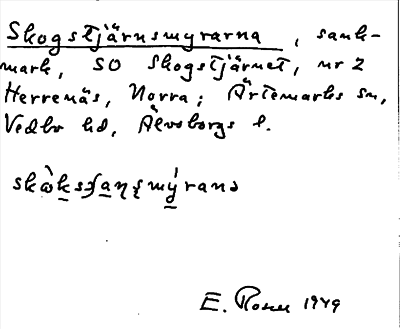 Skogstjärnsmyrarna, sank-
mark, SO Skogstjärnet, nr 2
Herrenäs, Norra; Ärtemarks sn,
Vedbo hd, Älvsborgs l.
E. Rosell 1949